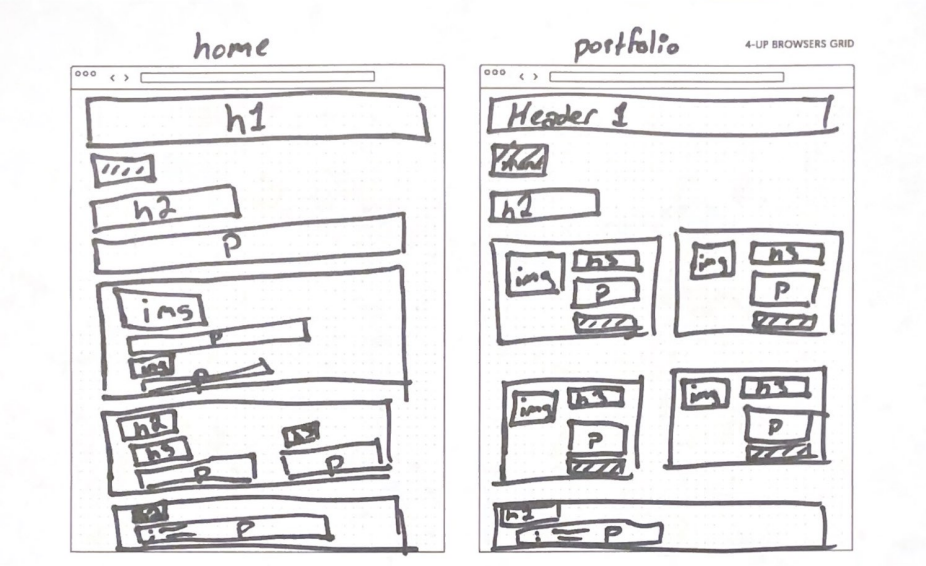 home
h1
h2
P
img
P
img
P
h2
h3
P
h3
P
P
portfolio
4-UP BROWSERS GRID
Header 1
h2
img
h3
P
img
h3
P
img
h3
P
img
h3
P
h2
P